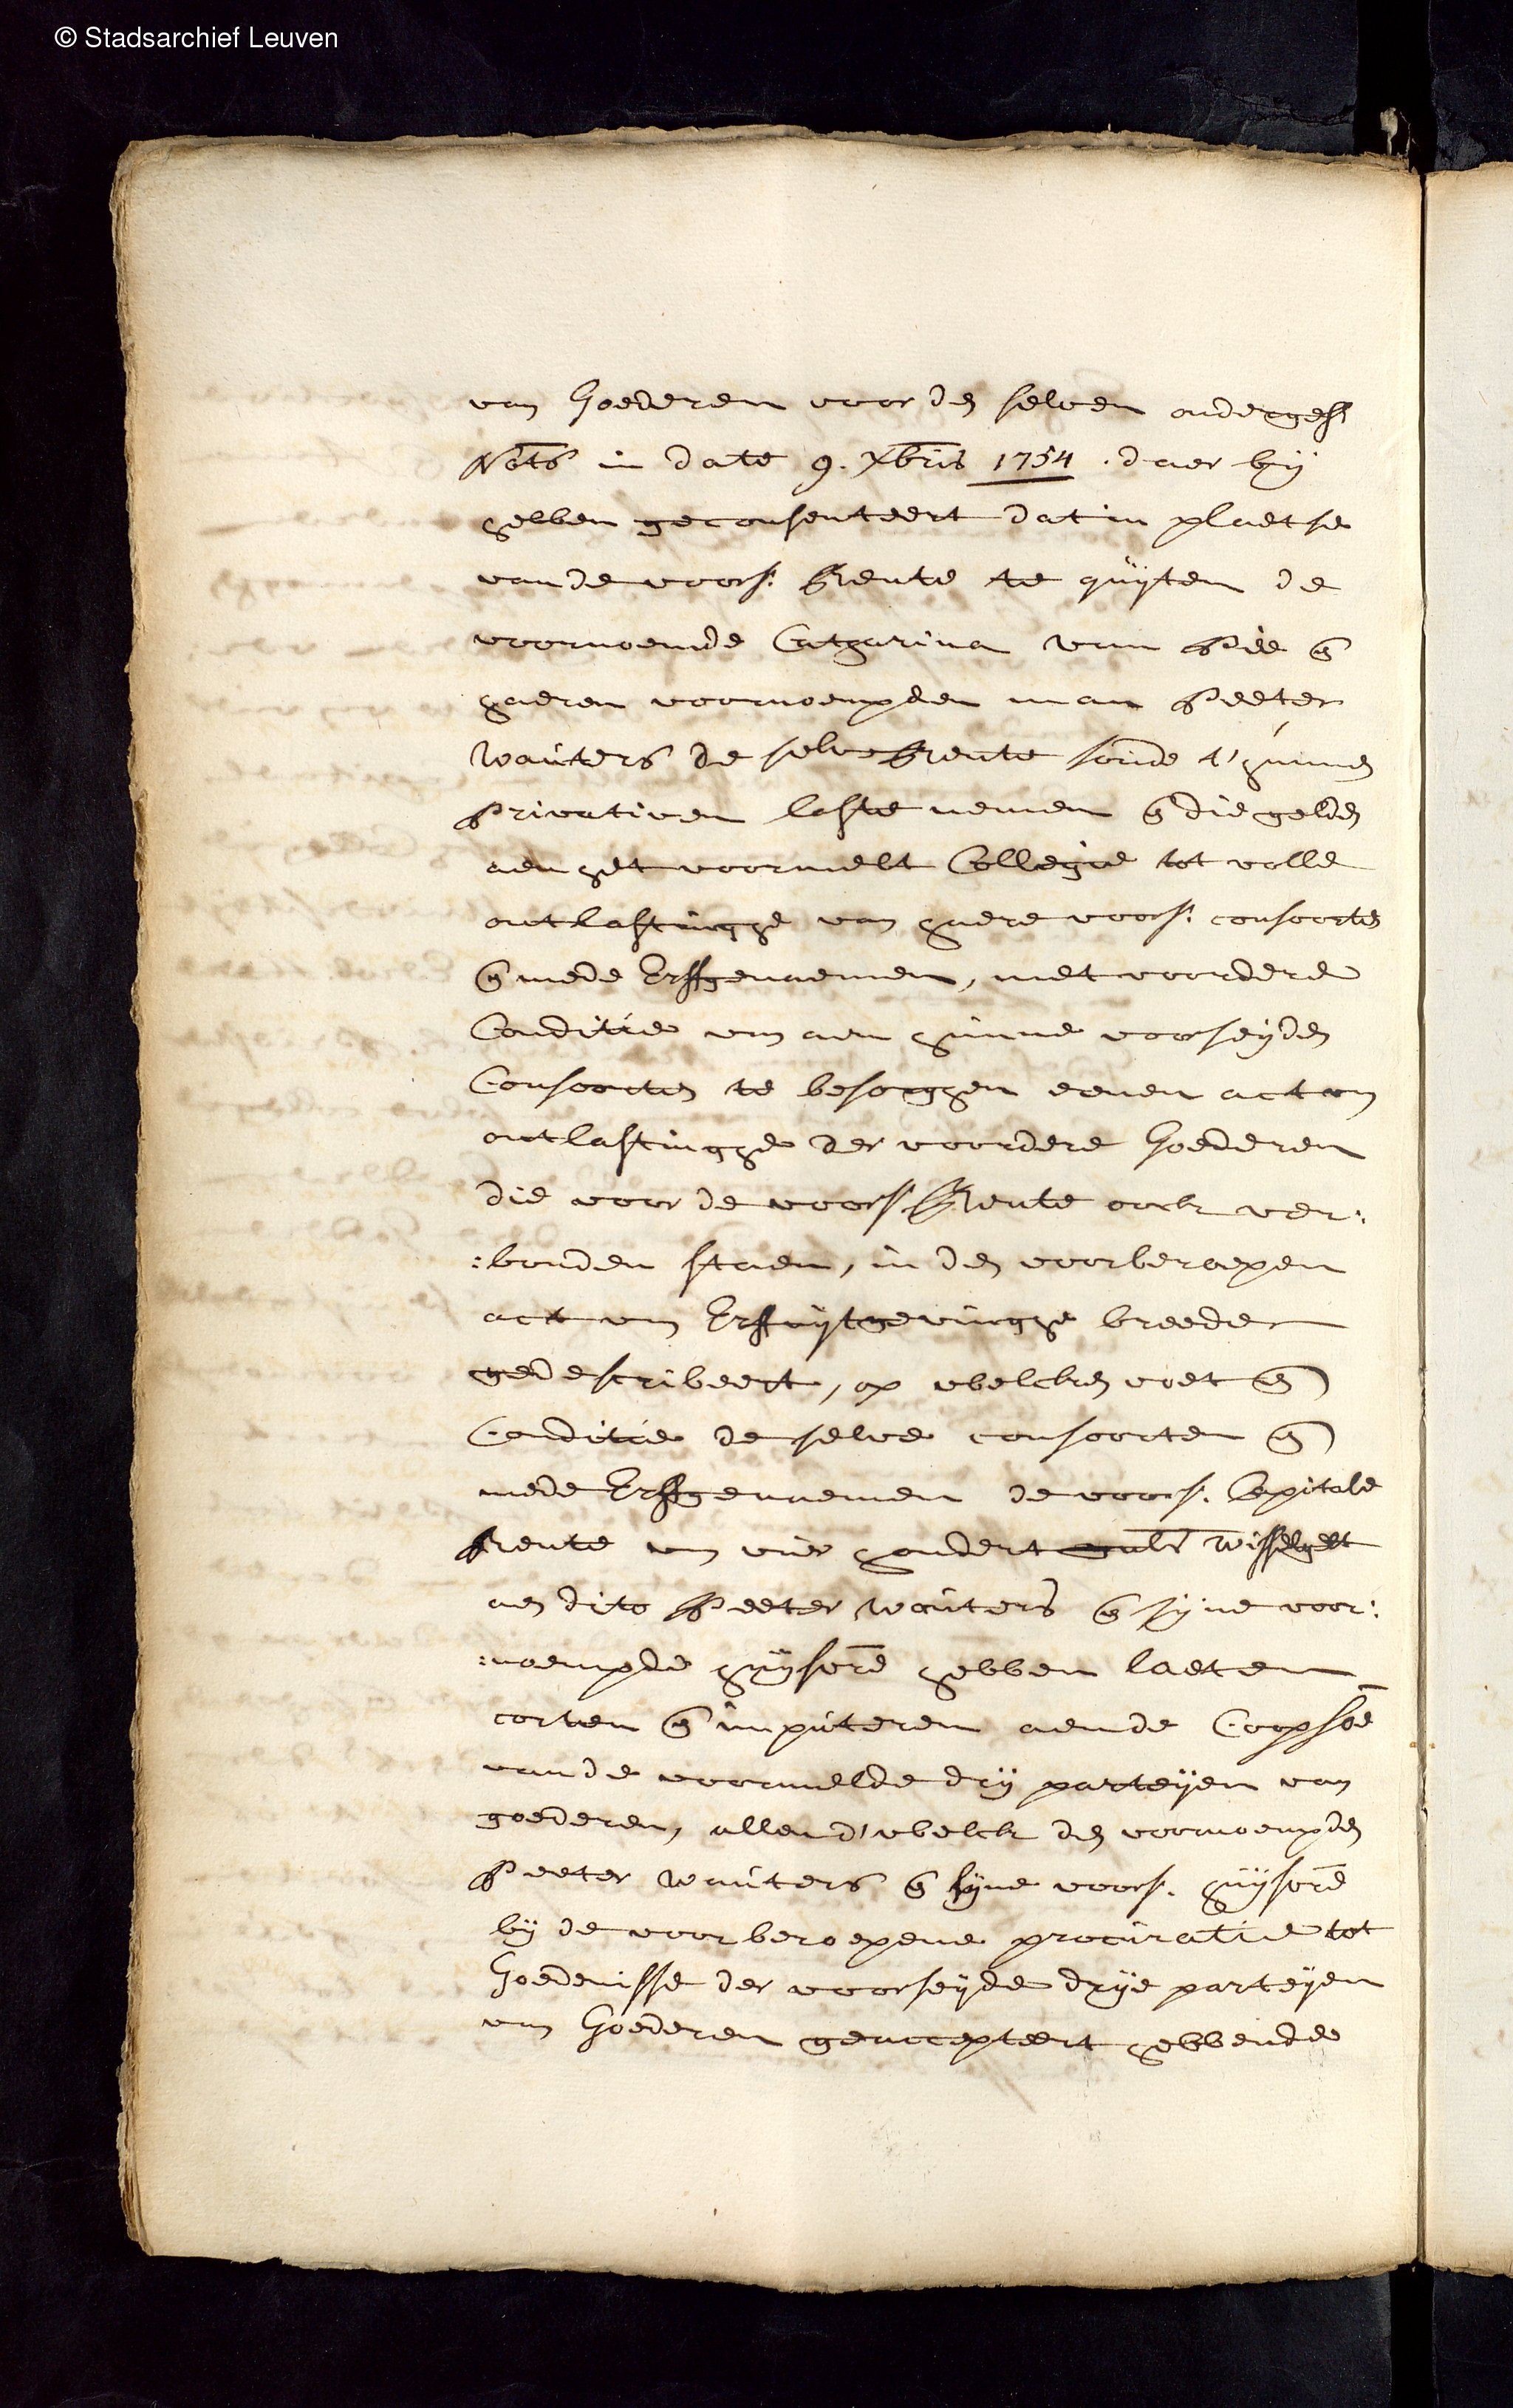 © Stadsarchief Leuven
van Goederen voor den selven ondergesh
Nots in date 9. Xbris 1754 . daer bij
hebben geconsenteert dat in plaetse
van de voors: Rente te quyten de
voornoemde Catharina van Pée en
haeren voornoempden man Peeter
Wauters de selve Rente soude t'hunnen
Privativen laste nemen en die gelden
aen het voormelt Collegie tot volle
ontlastingge van haere voors: consoorten
en mede Erffgenaemen, met voordere
Conditie van aen hunne voorseyden
Consoorten te besorggen eenen act van
ontlastingge der voordere Goederen
die voor de voors. Rente oock ver:
:bonden staen, in den voorberoepen
act van Erffuytgevingge breeder
gedescribeert, op welcken voet en
Conditie de selve consoorten en
mede Erffgenaemen de voors. Capitale
Rente van vier hondert guls Wisselgelt
aen dito Peeter Wauters en syne voor:
:noempde huysvre hebben laeten
corten en imputeren aen de Coopsoe
van de voormelde dry parteyen van
goederen, allen d'welck den voornoempden
Peeter Wauters en syne voors. huysvre
by de voorberoepene procuratie tot
Goedenisse der voorseyde drye parteyen
van Goederen geaccepteert hebbende